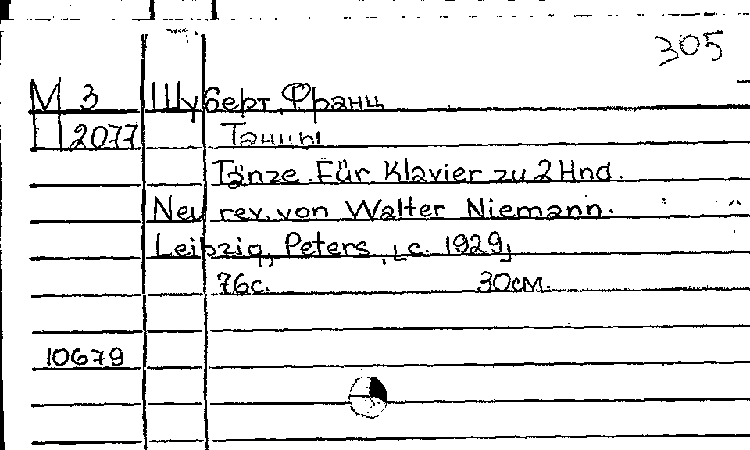 305
М 3 Шуберт, Франц
П 2077 Танцы
Tänze Für Klavier zu 2 Hnd.
Neu rev. von Walter Niemann.
Leipzig, Peters, [c. 1929]
76с. 30см.
10679